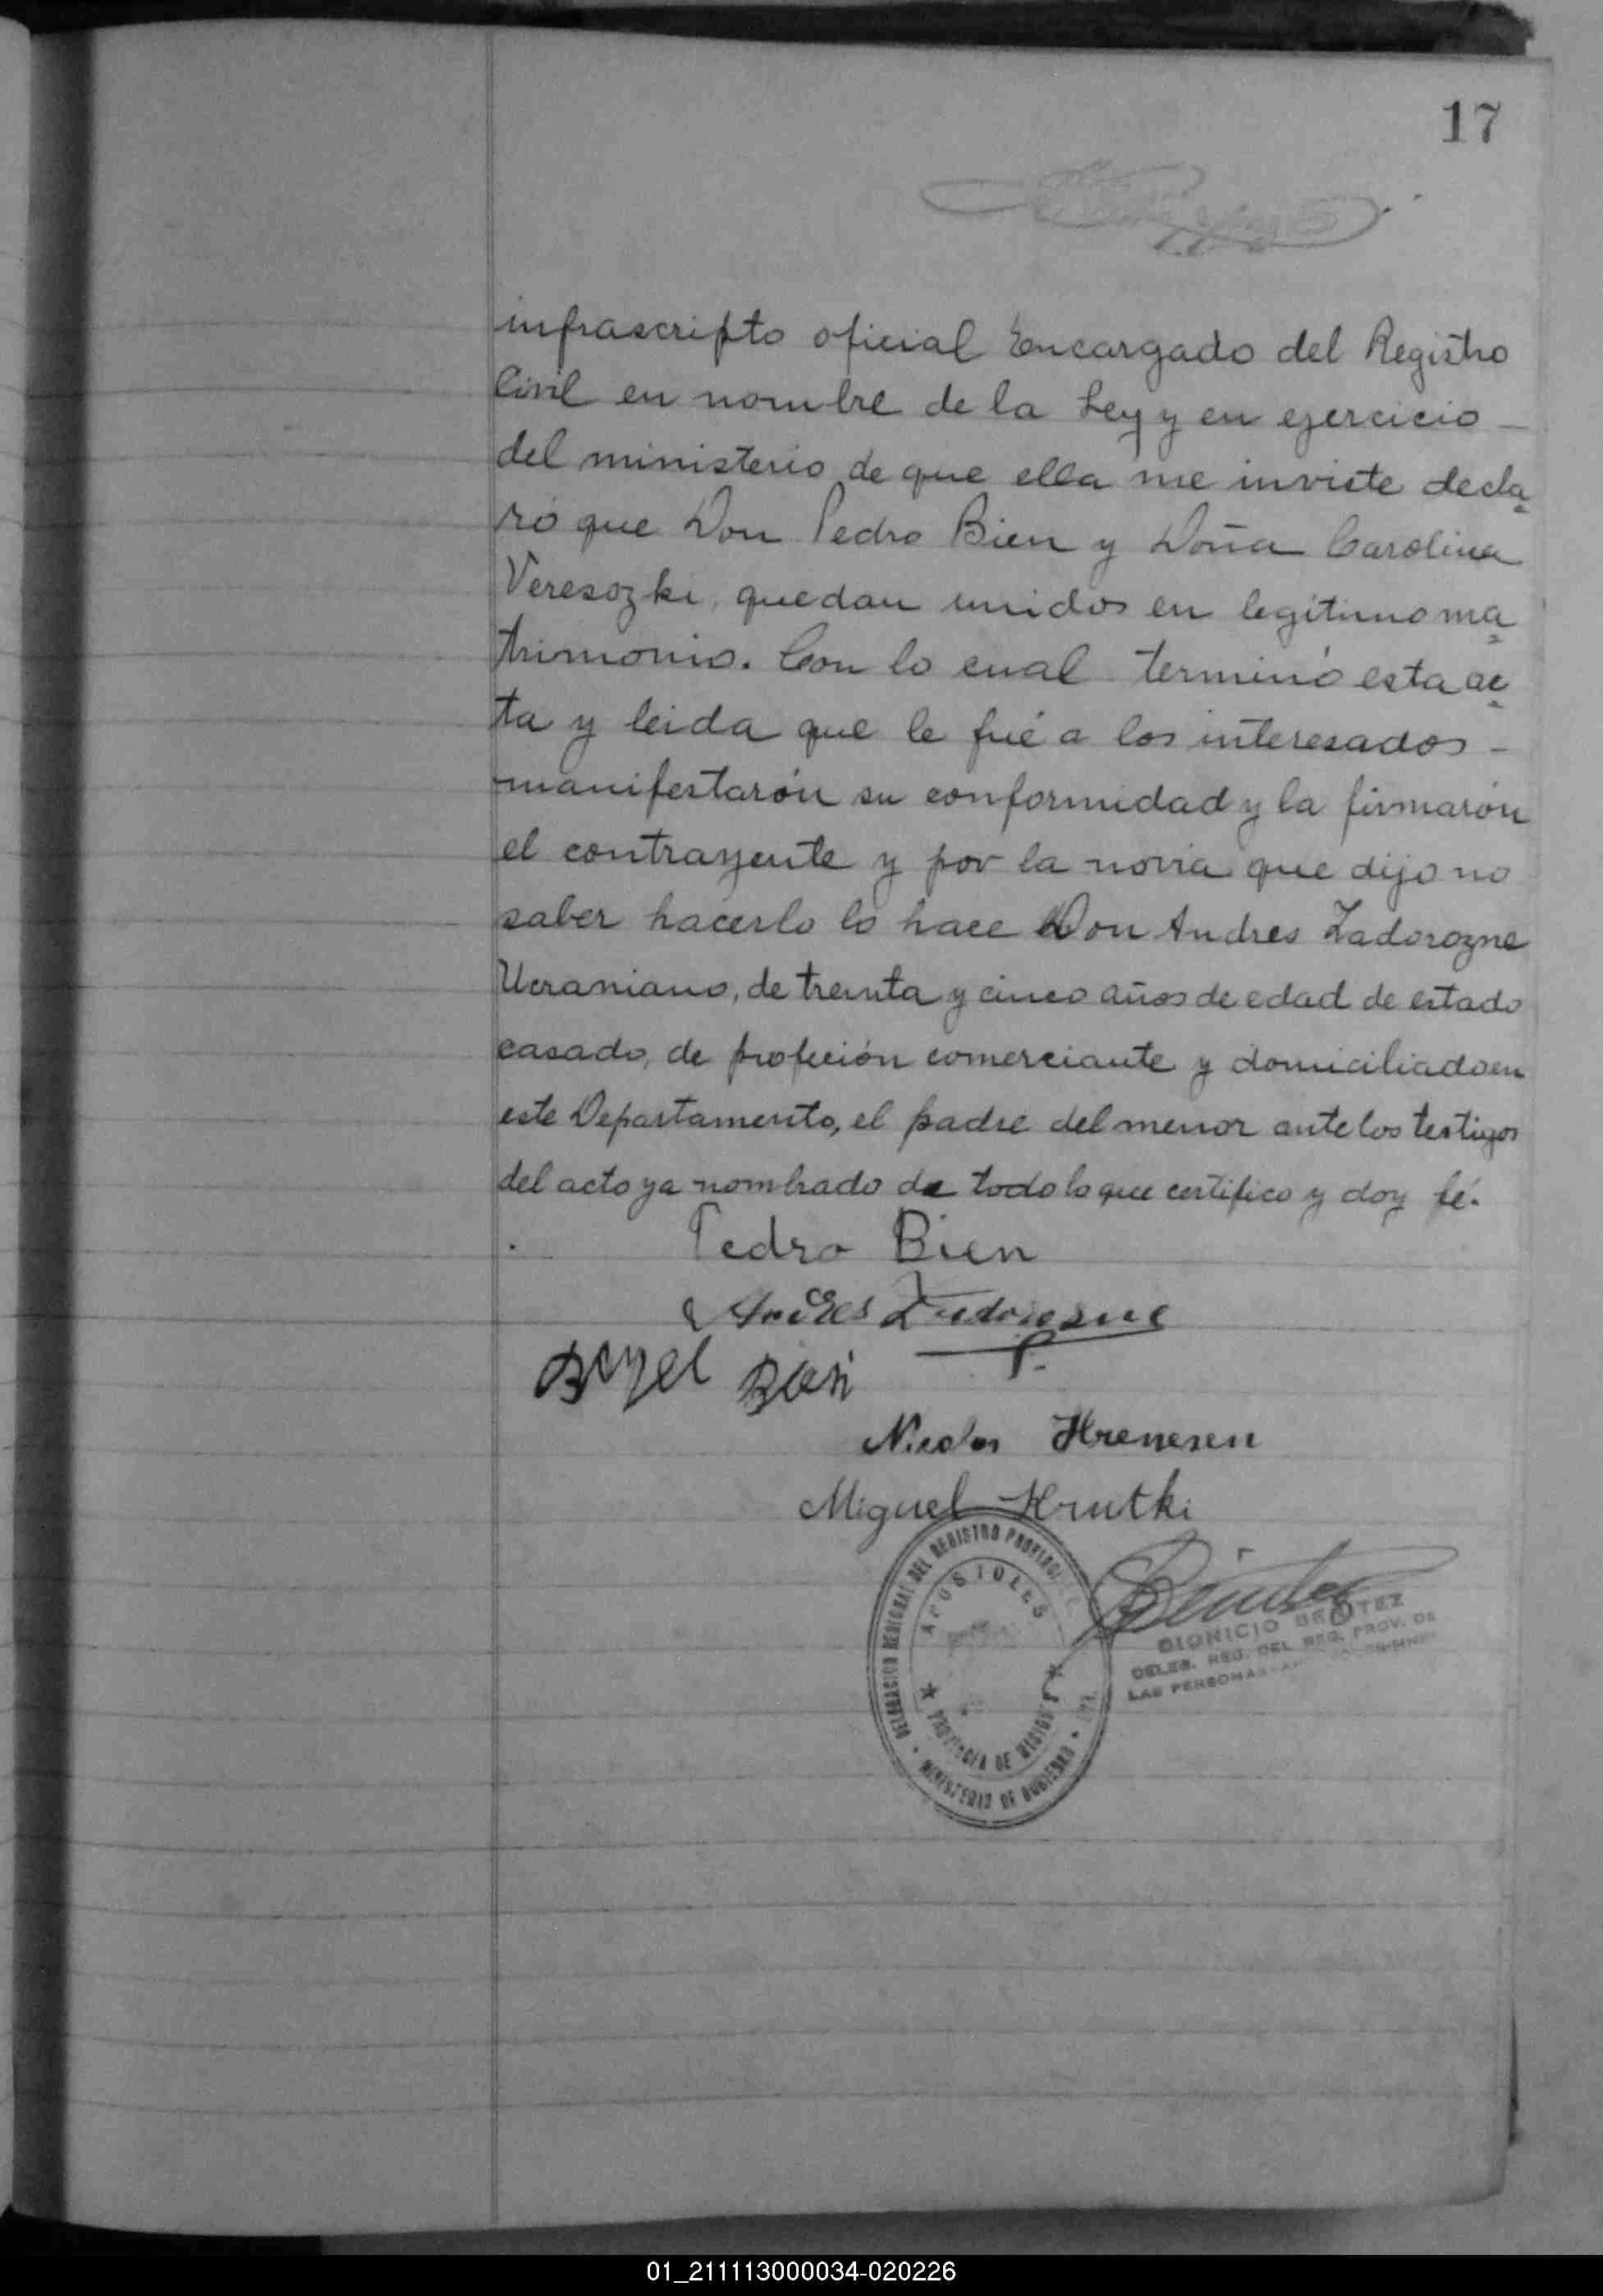 17
infrascripto oficial Encargado del Registro
Civil en nombre de la Ley y en ejercicio —
del ministerio de que ella me inviste decla
ró que Don Pedro Bien y Doña Carolina
Veresozki, quedan unidos en legitimo ma
trimonio. Con lo cual terminó esta ac
ta y leida que le fué a los interesados -
manifestarón su conformidad y la firmarón
el contrayente y por la novia que dijo no
saber hacerlo lo hace Don Andres Zadorozne
Ucraniano, de treinta y cinco años de edad de estado
casado, de profeción comerciante y domiciliado en
este Departamento, el padre del menor ante los testigos
del acto ya nombrado de todo lo que certifico y doy fé.
Pedro Bien
Andres Zadorozne
Nicolas
Miguel Krutki
DELEGACION REGIONAL DEL REGISTRO PROVINCIAL
APOSTOLES
PROVINCIA DE MISIONES
MINISTERIO DE GOBIERNO
DIONICIO BENITEZ
DELEG. REG. DEL REG. PROV. DE
LAS PERSONAS
01_211113000034-020226